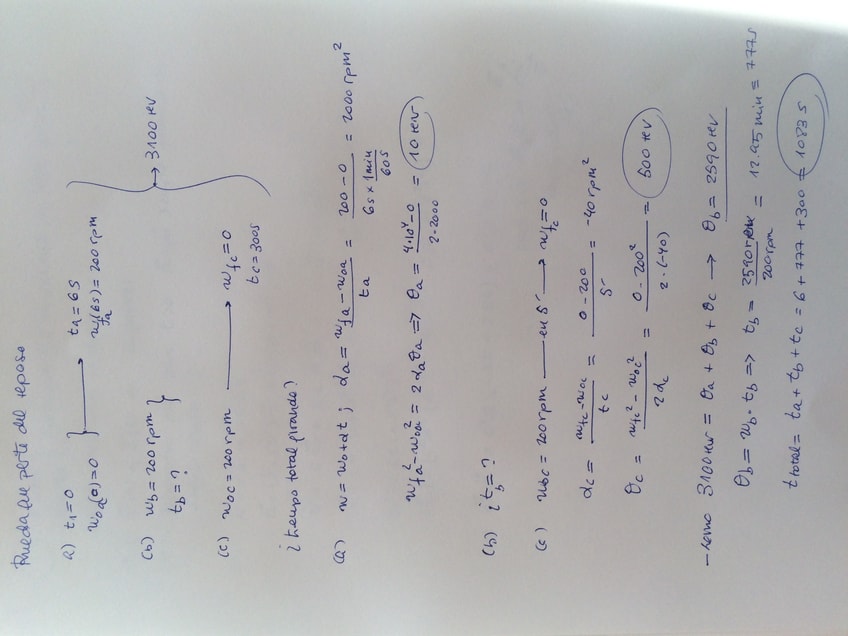 Rueda que parte del reposo
a) t₁=0 } ⟶ t₁=6s
ω₀ₐ(0)=0 ω_fa(6s)=200rpm
(b) ω_b=200rpm }
t_b=? } → 3100 rev
(c) ω₀c=200rpm ⟶ ω_fc=0
t_c=300s
¿tiempo total girando?
(a) ω=ω₀+αt ; αₐ = (ω_fa − ω₀ₐ)/tₐ = (200−0)/(6s × 1min/60s) = 2000 rpm²
ω_fa² − ω₀ₐ² = 2αₐθₐ ⇒ θₐ = (4·10⁴−0)/(2·2000) = 10 rev
(b) ¿t_b=?
(c) ω₀c=200rpm — en 5' ⟶ ω_fc=0
α_c = (ω_fc−ω₀c)/t_c = (0−200)/5' = −40rpm²
θ_c = (ω_fc² − ω₀c²)/(2α_c) = (0−200²)/(2·(−40)) = 500 rev
- como 3100rev = θₐ + θ_b + θ_c → θ_b = 2590rev
θ_b = ω_b · t_b ⇒ t_b = 2590/200rpm = 12.95min = 777s
t total = tₐ + t_b + t_c = 6+777+300 = 1083s